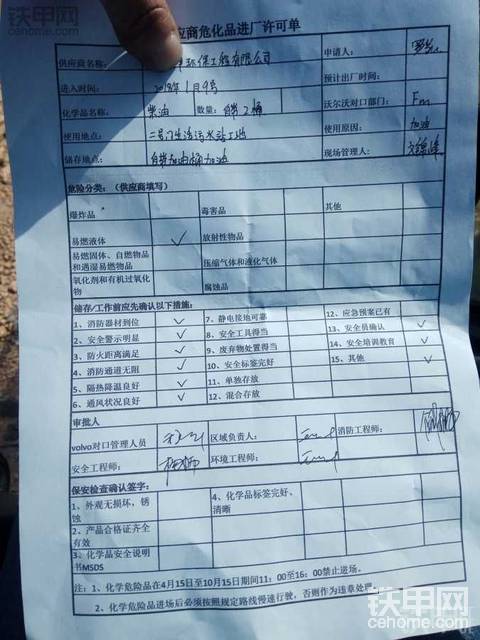 铁甲网
cehome.com
应商危化品进厂许可单
供应商名称: 环保工程有限公司 申请人:
进入时间: 2018年1月9号 预计出厂时间:
化学品名称: 柴油 数量: 自带2桶 沃尔沃对口部门: Fm
使用地点: 二号门生活污水站工地 使用原因: 加油
储存地点: 自带加油桶加油 现场管理人:
危险分类:(供应商填写)
爆炸品 毒害品 其他
易燃液体 ✓ 放射性物品
易燃固体、自燃物品和遇湿易燃物品 压缩气体和液化气体
氧化剂和有机过氧化物 腐蚀品
储存/工作前应先确认以下措施:
1、消防器材到位 ✓ 7、静电接地可靠 12、应急预案已有
2、安全警示明显 ✓ 8、安全工具得当 ✓ 13、安全员确认 ✓
3、防火距离满足 ✓ 9、废弃物处置得当 ✓ 14、安全培训教育 ✓
4、消防通道无阻 ✓ 10、安全标签完好 ✓ 15、其他 ✓
5、隔热降温良好 ✓ 11、单独存放
6、通风状况良好 ✓ 12、混合存放
审批人
volvo对口管理人员 区域负责人: 消防工程师:
安全工程师: 环境工程师:
保安检查确认签字:
1、外观无损坏,锈蚀 4、化学品标签完好、清晰
2、产品合格证齐全有效
3、化学品安全说明书MSDS
注:1、化学危险品在4月15日至10月15日期间11:00至16:00禁止进场。
2、化学危险品进场后必须按照规定路线慢速行驶,否则作为违章处理。
铁甲网
cehome.com